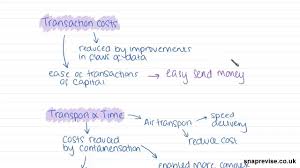 Transaction costs
reduced by improvements
in flows of data
ease of transactions → easy send money
of capital
Transport & Time
Air transport → speed
delivery
reduce cost
costs reduced
by containerisation
enabled more complex
snaprevise.co.uk